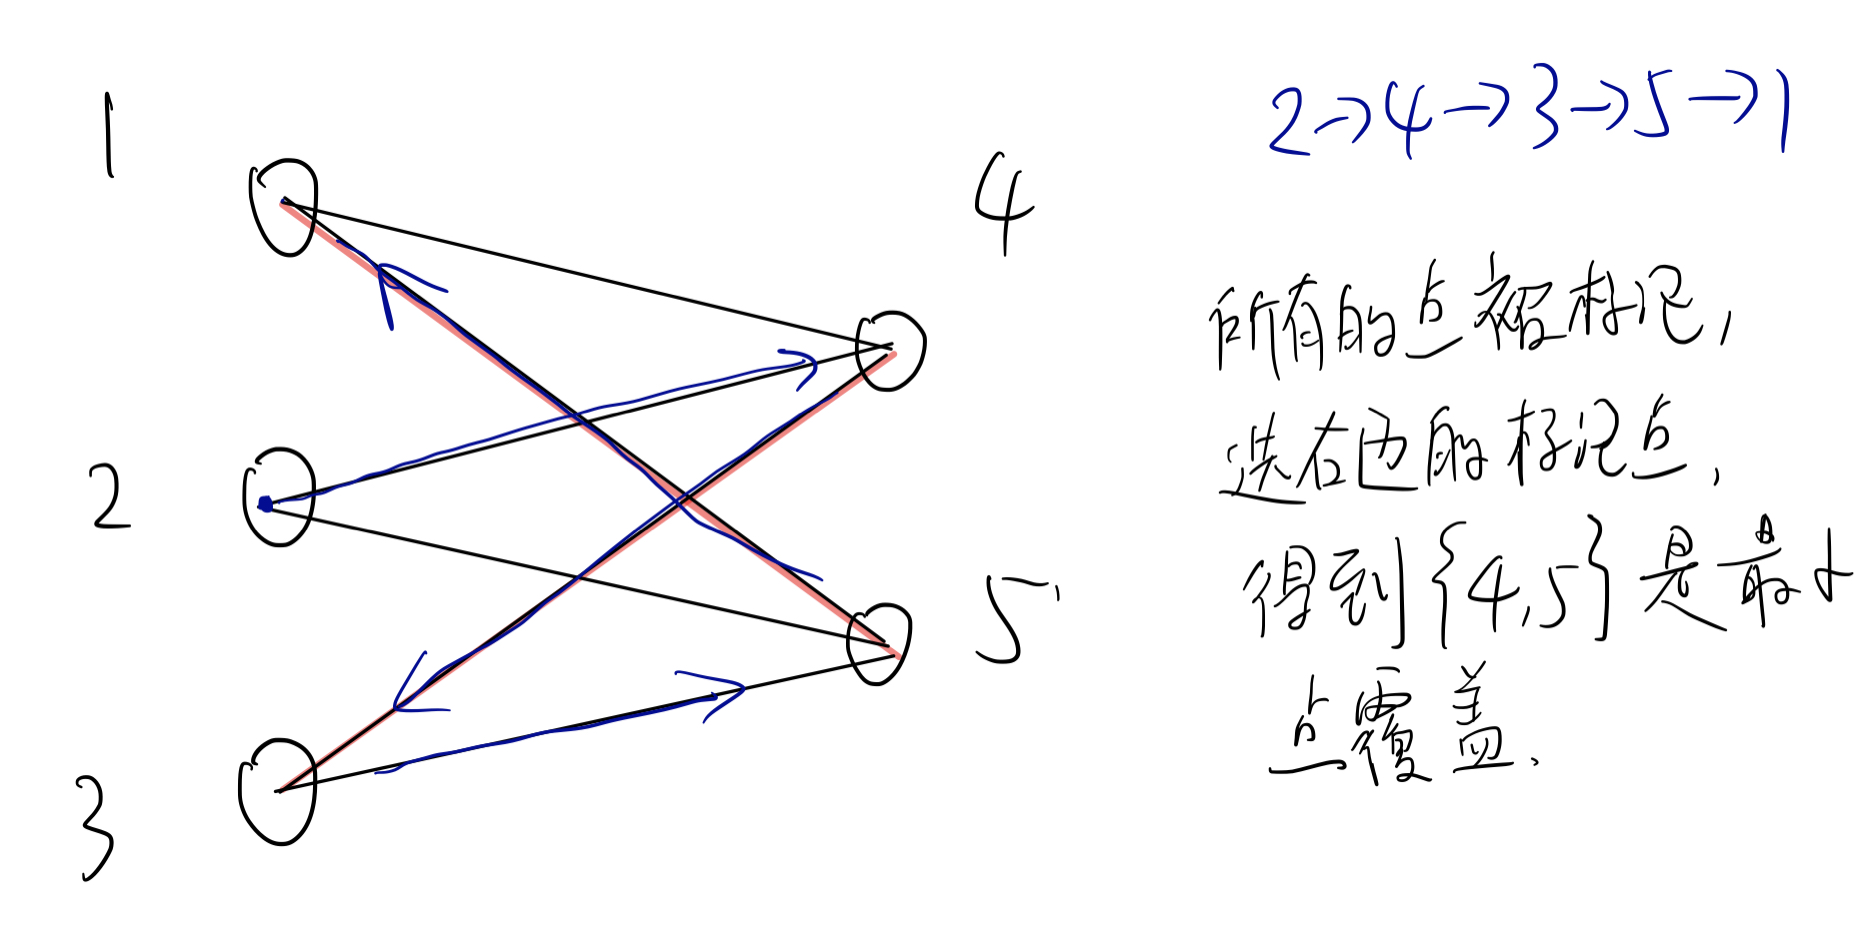 1
2
3
4
5
2→4→3→5→1
所有的点被标记,
选右边的标记点,
得到{4,5}是最小
点覆盖.